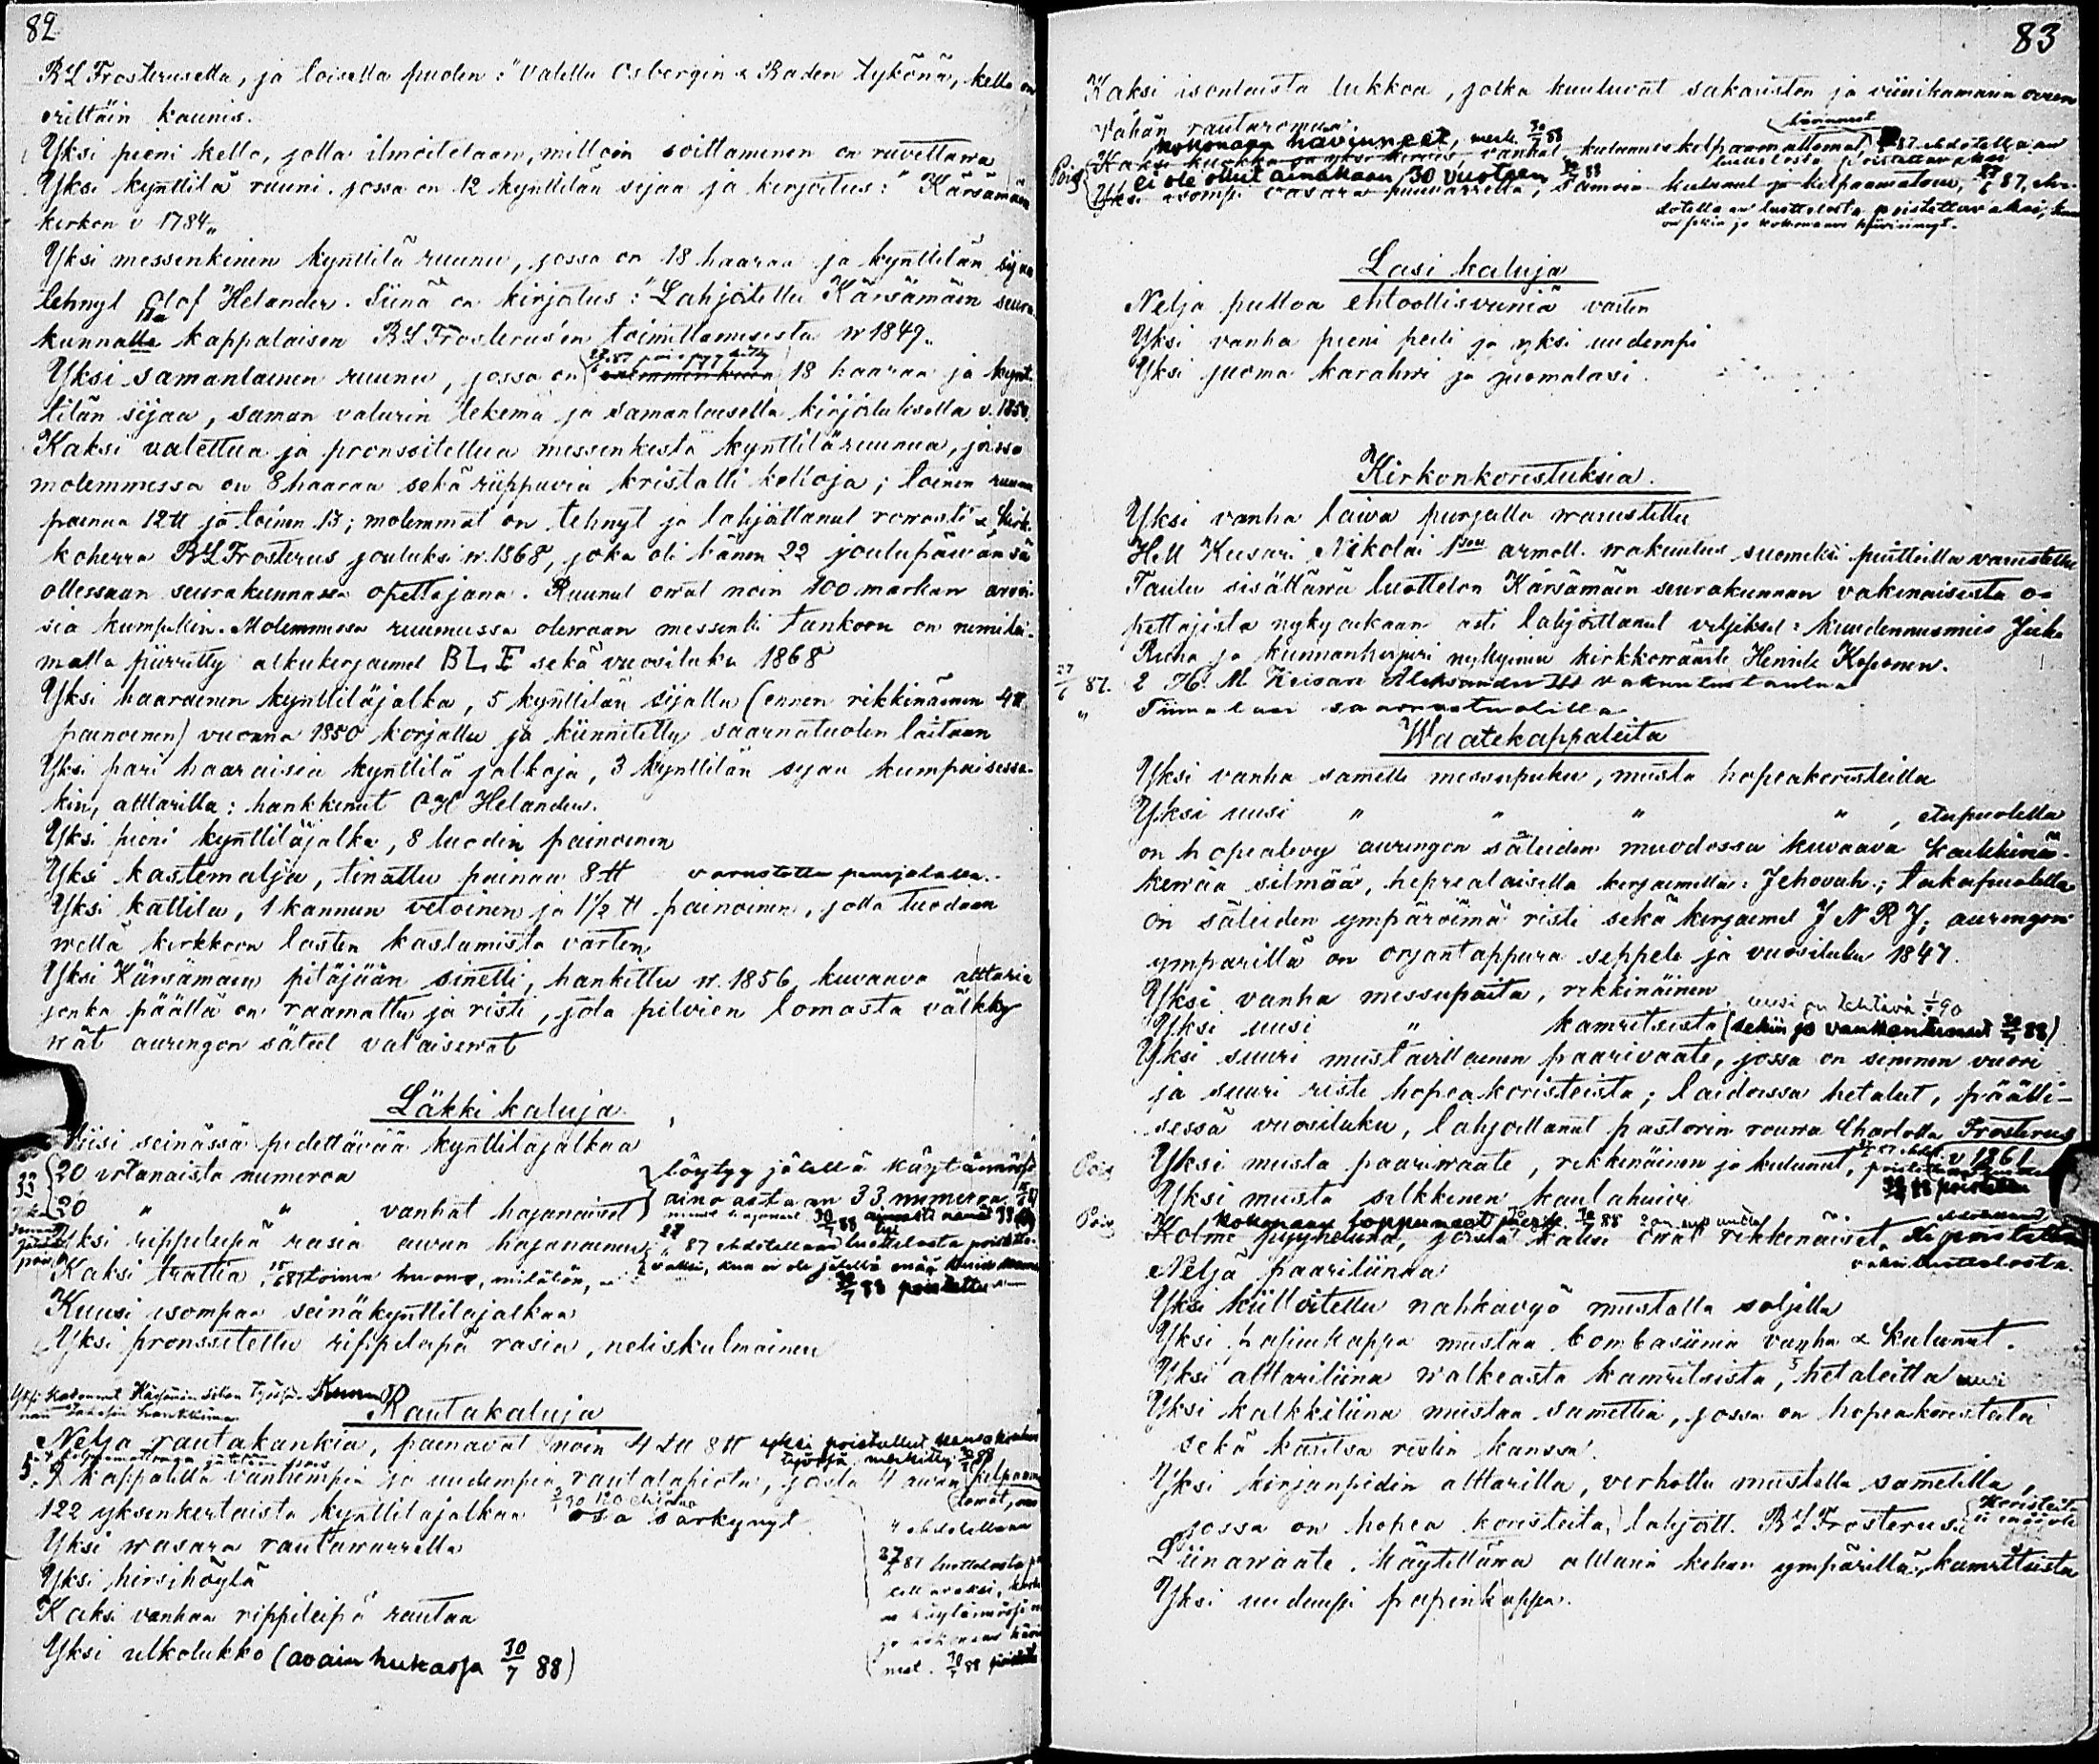 82
BL Frosterusella, ja toisella puolen: "Valettu Osbergin & Baden tykönä, kello on
erittäin kaunis.
Yksi pieni kello, jolla ilmoitetaan, milloin soittaminen on ruvettawa
Yksi kynttilä ruuni. jossa on 12 kynttilän sijaa ja kirjoitus: " Kärsämäen
kirkon v 1784„
Yksi messenkinen kynttilä ruunu, jossa on 18 haaraa ja kynttilän sijaa
tehnyt Olof Helander. Siinä on kirjotus: "Lahjoitettu Kärsämäen seura
kunnalle kappalaisen BL Frosterus'en toimittamisesta w 1849„
Yksi samanlainen ruunu, jossa on 18 haaraa ja kynt
tilän sijaa, saman valurin tekemä ja samanlaisella kirjoituksella v. 1850.
Kaksi valettua ja pronssitettua messenkistä kynttiläruunua, joissa
molemmessa on 8 haaraa sekä riippuvia kristalli kelloja; toinen ruunu
painaa 12 ℔ ja toinen 13; molemmat on tehnyt ja lahjottanut rowasti & kirk-
koherra BL Frosterus jouluksi w. 1868, joka oli hänen 22 joulupäiwänsä
ollessaan seurakunnassa opettajana. Ruunut owat noin 100 markan arvoi-
sia kumpikin. Molemmessa ruunussa olewaan messenki tankoon on
malla piirretty alkukirjaimet BLF sekä vuosiluku 1868
Yksi haarainen kynttiläjalka, 5 kynttilän sijalla (ennen rikkinäinen 4 ℔
painoinen) vuonna 1850 korjattu ja kiinnitetty saarnatuolin laitaan
Yksi pari haaraisia kynttilä jalkoja, 3 kynttilän sijaa kumpaisessa-
kin, alttarilla: hankkinut O H Helander.
Yksi pieni kynttiläjalka, 8 luodin painoinen
Yksi kastemalja, tinattu painaa 8 ℔ varustettu puujalalla.
Yksi kattila, 1 kannun vetoinen ja 1½ ℔ painoinen, jolla tuodaan
wettä kirkkoon lasten kastamista varten
Yksi Kärsämäen pitäjään sinetti, hankittu w. 1856, kuvaava alttaria
jonka päällä on raamattu ja risti, jota pilvien lomasta välkky
wät auringon säteet valaisewat
Läkki kaluja
Viisi seinässä pidettävää kynttiläjalkaa
33 20 votanaista numeroa löytyy jälellä käytännössä
30 " " vanhat hajanaiset ainoastaan 33 numeroa
Yksi rippileipä rasia aivan hajanainen 87 ehdotellaan luettelosta poistetta-
Kaksi trattia, toinen huono, mitätön, waksi, kun ei ole jälellä enää
30/7 88 poistettu
Kuusi isompaa seinäkynttiläjalkaa
Yksi pronssitettu rippileipä rasia, neliskulmainen
Rautakaluja
Neljä rautakankia, painavat noin 4 L℔ 8 ℔ yksi poistettu
5. 9 kappaletta vanhempia ja uudempia rautalapiota, josta 4 aivan kelpaama
122 yksenkertaista kynttiläjalkaa osa särkynyt
Yksi wasara rautawarrella
Yksi hirsihöylä
Kaksi vanhaa rippileipä rautaa
Yksi ulkolukko (avain hukassa 30/7 88)
83
Kaksi isonlaista lukkoa, jotka kuuluvat sakariston ja viinikamarin oveen
Vähän rautaromua.
kokonaan hävinneet, merk. 30/7 88
Pois Kaksi kuokkaa ja yksi kirves, vanhat kuluneet kelpaamattomat 87 ehdotellaan
ei ole ollut ainakaan 30 vuoteen 30/7 88
Yksi isompi vasara puuwarrella, samoin kulunut ja kelpaamaton, 27/6 87, eh-
dotellaan luettelosta poistettavaksi, kun
on sekin jo kokonaan hävinnyt.
Lasi kaluja
Neljä pulloa ehtoollisviiniä varten
Yksi vanha pieni peili ja yksi uudempi
Yksi juoma karahwi ja juomalasi.
Kirkonkoristuksia.
Yksi vanha laiwa purjeilla warustettu
H M Keisari Nikolai I sen armoll. wakuutus suomeksi puitteilla varustettu
Taulu sisältäwä luettelon Kärsämäen seurakunnan vakinaisista o-
pettajista nykyaikaan asti lahjoittanut veljekset: kuudennusmies Juho
Ruha ja kunnankirjuri nykyinen kirkkowäärti Henrik Koponen.
27/6 87. 2 H. M. Keisari Aleksander III vakuutustaulua
" Tiimalasi saarnatuolilla
Waatekappaleita
Yksi vanha sametti messupuku, musta hopeakoristeilla
Yksi uusi " " " " , etupuolella
on hopealevy auringon säteiden muodossa kuvaava kaikkinä-
kewää silmää, heprealaisella kirjaimella: Jehovah; takapuolella
on säteiden ympäröimä risti sekä kirjaimet J N R J; auringon
ympärillä on orjantappura seppele ja vuosiluku 1847.
Yksi vanha messupaita, rikkinäinen. uusi on tehtävä 90
Yksi uusi " kamritsista (sekin jo vanhentunut 30/7 88)
Yksi suuri mustavillainen paarivaate, jossa on siminen vuori
ja suuri risti hopeakoristeista; laidoissa hetaleet, päälli-
sessä vuosiluku, lahjoittanut pastorin rouwa Charlotta Frosterus
v 1861
Pois Yksi musta paariwaate, rikkinäinen ja kulunut,
Yksi musta silkkinen kaulahuivi 30/7 88 poistettu
kokonaan loppuneet merk. 30/7 88
Pois Kolme pyyheliina, joista kaksi ovat rikkinäiset.
Neljä paariliinaa
Yksi kiillotettu nahkavyö mustalla soljella
Yksi papinkappa mustaa bombasiinia vanha & kulunut.
Yksi alttariliina walkeasta kamritsista, hetaleilla uusi
Yksi kalkkiliina mustaa samettia, jossa on hopeakoristeita
sekä karitsa ristin kanssa.
Yksi kirjanpidin alttarilla, verhottu mustalla sametilla,
jossa on hopea koristeita, lahjoitt. BL Frosterus.
Liinawaate, käytettäwä alttarin kehän ympärillä, kamritsista
Yksi uudempi papinkappa.